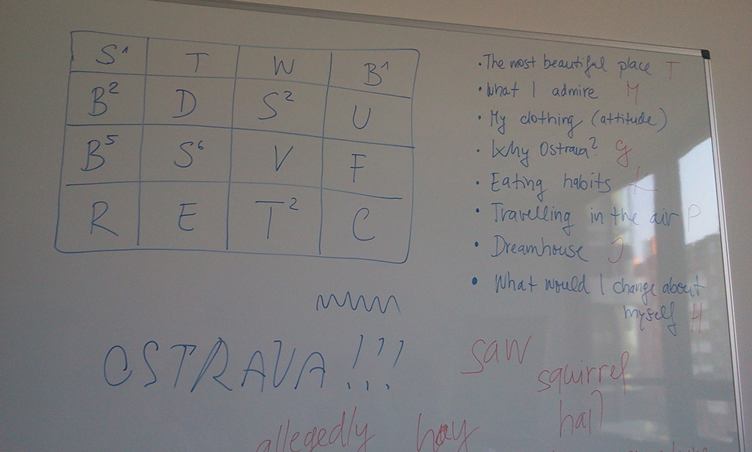 S¹ T W B¹
B² D S² U
B⁵ S⁶ V F
R E T² C
• The most beautiful place T
• What I admire M
• My clothing (attitude)
• Why Ostrava? G
• Eating habits L
• Travelling in the air P
• Dreamhouse J
• What would I change about
myself H
OSTRAVA!!!
saw
squirrel
hail
allegedly hay